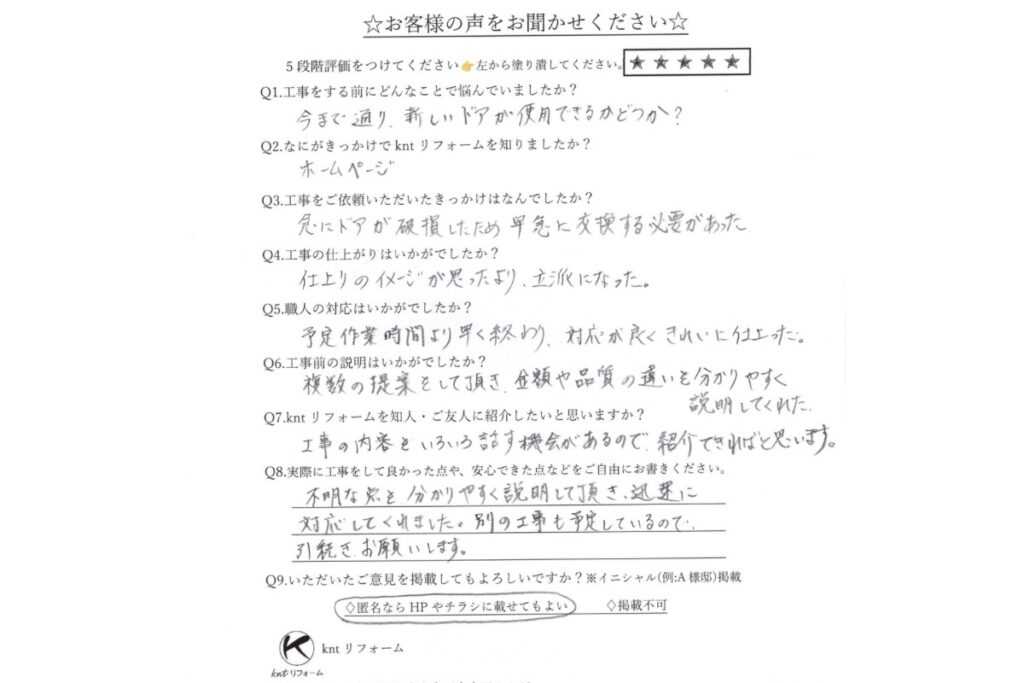 ☆お客様の声をお聞かせください☆
5段階評価をつけてください👉左から塗り潰してください。★★★★★
Q1.工事をする前にどんなことで悩んでいましたか？
今まで通り、新しいドアが使用できるかどうか？
Q2.なにがきっかけで knt リフォームを知りましたか？
ホームページ
Q3.工事をご依頼いただいたきっかけはなんでしたか？
急にドアが破損したため早急に交換する必要があった
Q4.工事の仕上がりはいかがでしたか？
仕上りのイメージが思ったより、立派になった。
Q5.職人の対応はいかがでしたか？
予定作業時間より早く終わり、対応が良くきれいに仕上った。
Q6.工事前の説明はいかがでしたか？
複数の提案をして頂き、金額や品質の違いを分かりやすく
説明してくれた、
Q7.knt リフォームを知人・ご友人に紹介したいと思いますか？
工事の内容をいろいろ話す機会があるので、紹介できればと思います。
Q8.実際に工事をして良かった点や、安心できた点などをご自由にお書きください。
不明な点を分かりやすく説明して頂き、迅速に
対応してくれました。別の工事も予定しているので、
引続き、お願いします。
Q9.いただいたご意見を掲載してもよろしいですか？※イニシャル(例:A 様邸)掲載
◇匿名なら HP やチラシに載せてもよい ◇掲載不可
knt リフォーム
knt リフォーム